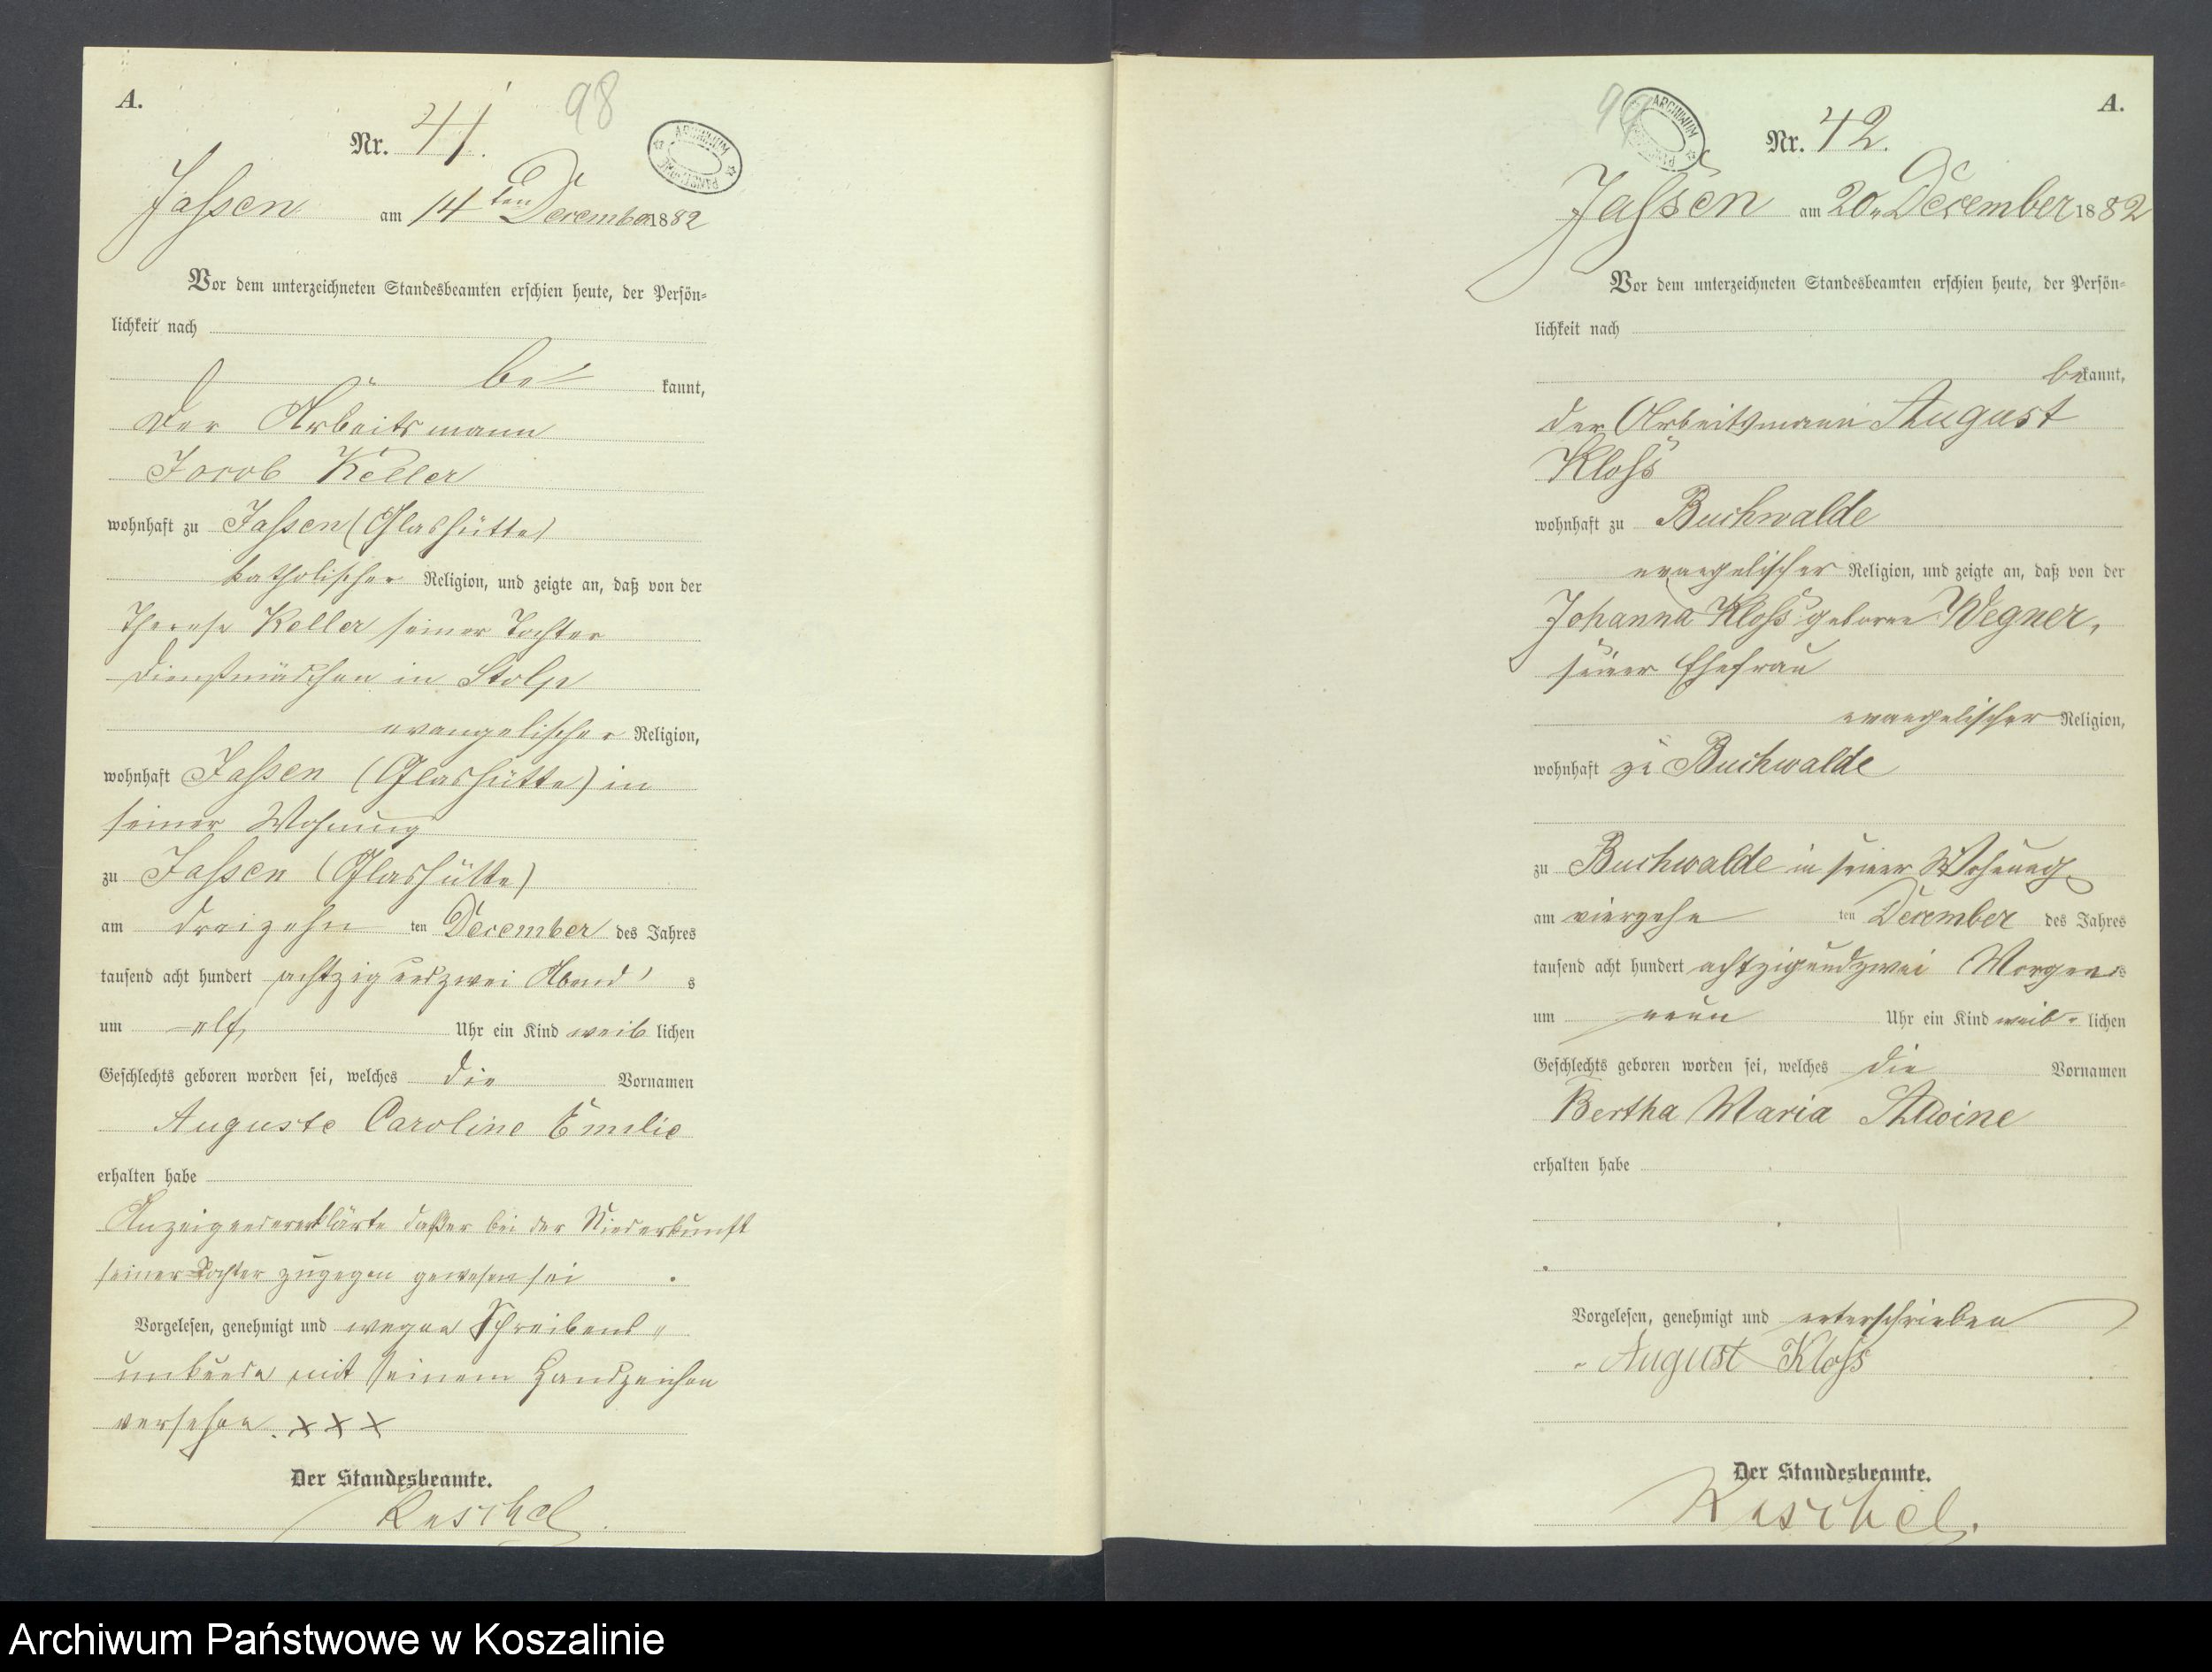 A.
98
Nr. 41.
ARCHIWUM PAŃSTWOWE
Jassen am 14ten December 1882
Vor dem unterzeichneten Standesbeamten erschien heute, der Persön-
lichkeit nach
be kannt,
der Arbeitsmann
Jacob Keller
wohnhaft zu Jassen (Glashütte)
katholischer Religion, und zeigte an, daß von der
Therese Keller seiner Tochter
Dienstmädchen in Stolp
evangelischer Religion,
wohnhaft Jassen (Glashütte) in
seiner Wohnung
zu Jassen (Glashütte)
am dreizehn ten December des Jahres
tausend acht hundert achtzig und zwei Abend s
um elf Uhr ein Kind weib lichen
Geschlechts geboren worden sei, welches die Vornamen
Auguste Caroline Emilie
erhalten habe
Anzeigender erklärte daß er bei der Niederkunft
seiner Tochter zugegen gewesen sei
Vorgelesen, genehmigt und wegen Schreibens-
unkunde mit seinem Handzeichen
versehen. XXX
Der Standesbeamte.
Reschel.
A.
99
ARCHIWUM PAŃSTWOWE
Nr. 42.
Jassen am 20. December 1882
Vor dem unterzeichneten Standesbeamten erschien heute, der Persön-
lichkeit nach
bekannt,
der Arbeitsmann August
Kloss
wohnhaft zu Buchwalde
evangelischer Religion, und zeigte an, daß von der
Johanna Kloss geborne Wegner,
seiner Ehefrau
evangelischer Religion,
wohnhaft zu Buchwalde
zu Buchwalde in seiner Wohnung
am vierzehn ten December des Jahres
tausend acht hundert achtzig und zwei Morgens
um neun Uhr ein Kind weib- lichen
Geschlechts geboren worden sei, welches die Vornamen
Bertha Maria Alwine
erhalten habe
Vorgelesen, genehmigt und unterschrieben
August Kloss
Der Standesbeamte.
Reschel.
Archiwum Państwowe w Koszalinie